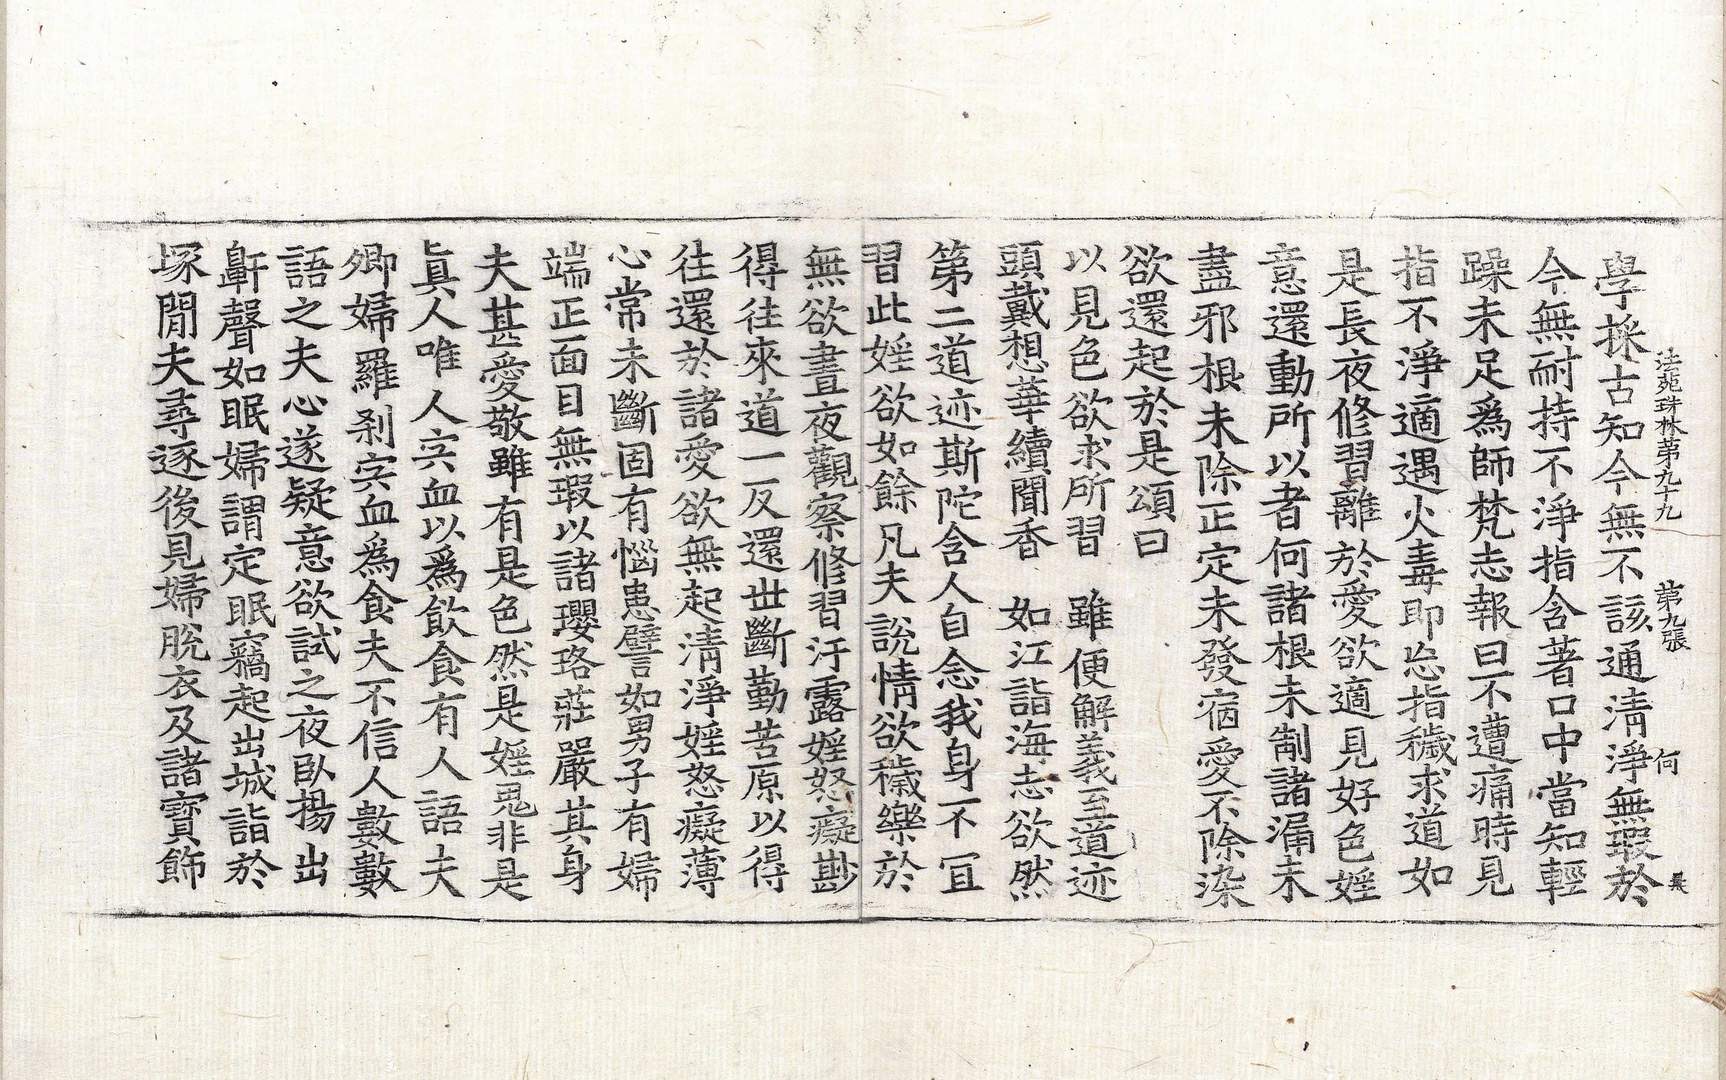 法苑珠林第九十九 第九張 何
學採古知今無不該通淸淨無瑕於
今無耐持不淨指含著口中當知輕
躁未足爲師梵志報曰不遭痛時見
指不淨適遇火毒卽忘指穢求道如
是長夜修習離於愛欲適見好色婬
意還動所以者何諸根未制諸漏未
盡邪根未除正定未發宿愛不除染
欲還起於是頌曰
以見色欲求所習 雖便解義至道迹
頭戴想華續聞香 如江詣海志欲然
第二道迹斯陀含人自念我身不冝
習此婬欲如餘凡夫說情欲穢樂於
無欲晝夜觀察修習汙露婬怒癡尠
得往來道一反還丗斷勤苦原以得
往還於諸愛欲無起淸淨婬怒癡薄
心常未斷固有惱患譬如男子有婦
端正面目無瑕以諸瓔珞莊嚴其身
夫甚愛敬雖有是色然是婬鬼非是
眞人唯人宍血以爲飮食有人語夫
卿婦羅刹宍血爲食夫不信人數數
語之夫心遂疑意欲試之夜臥揚出
鼾聲如眠婦謂定眠竊起出城詣於
塚閒夫尋逐後見婦脫衣及諸寶飾